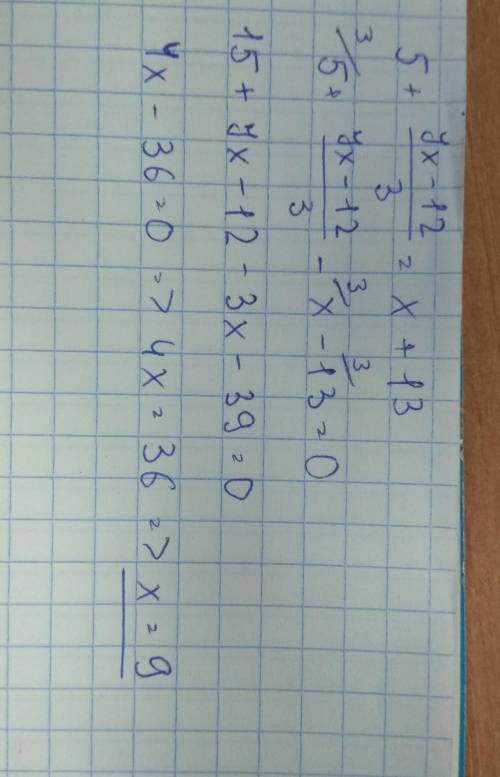 5 + (7x - 12)/3 = x + 13
³/5 + (7x - 12)/3 - ³/x - ³/13 = 0
15 + 7x - 12 - 3x - 39 = 0
4x - 36 = 0 => 4x = 36 => x = 9